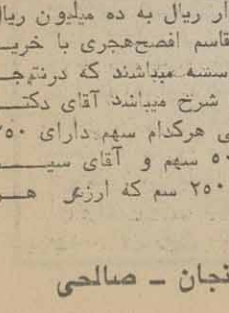 ار ریال به ده میلیون ریال
قاسم افصح‌هجری با خریـ
سسه میباشند که درنتیجـ
شرح میباشد آقای دکتـ
ی هرکدام سهم دارای ۲۵۰
۵۰ سهم و آقای سیـ
۲۵۰ سم که ارزش هـ
نجان ـ صالحی